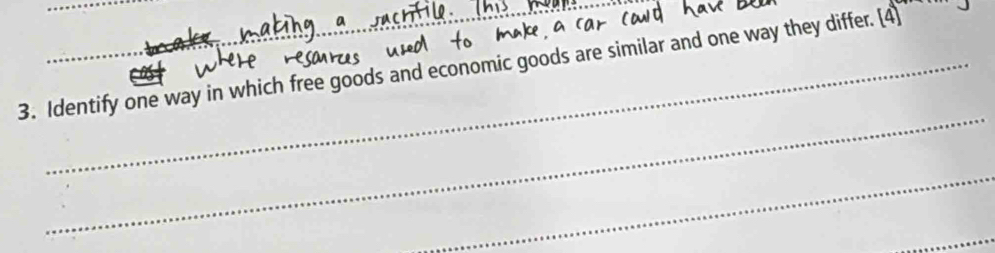 making a sacrifile. This means
where resources used to make a car could have been
3. Identify one way in which free goods and economic goods are similar and one way they differ. [4]